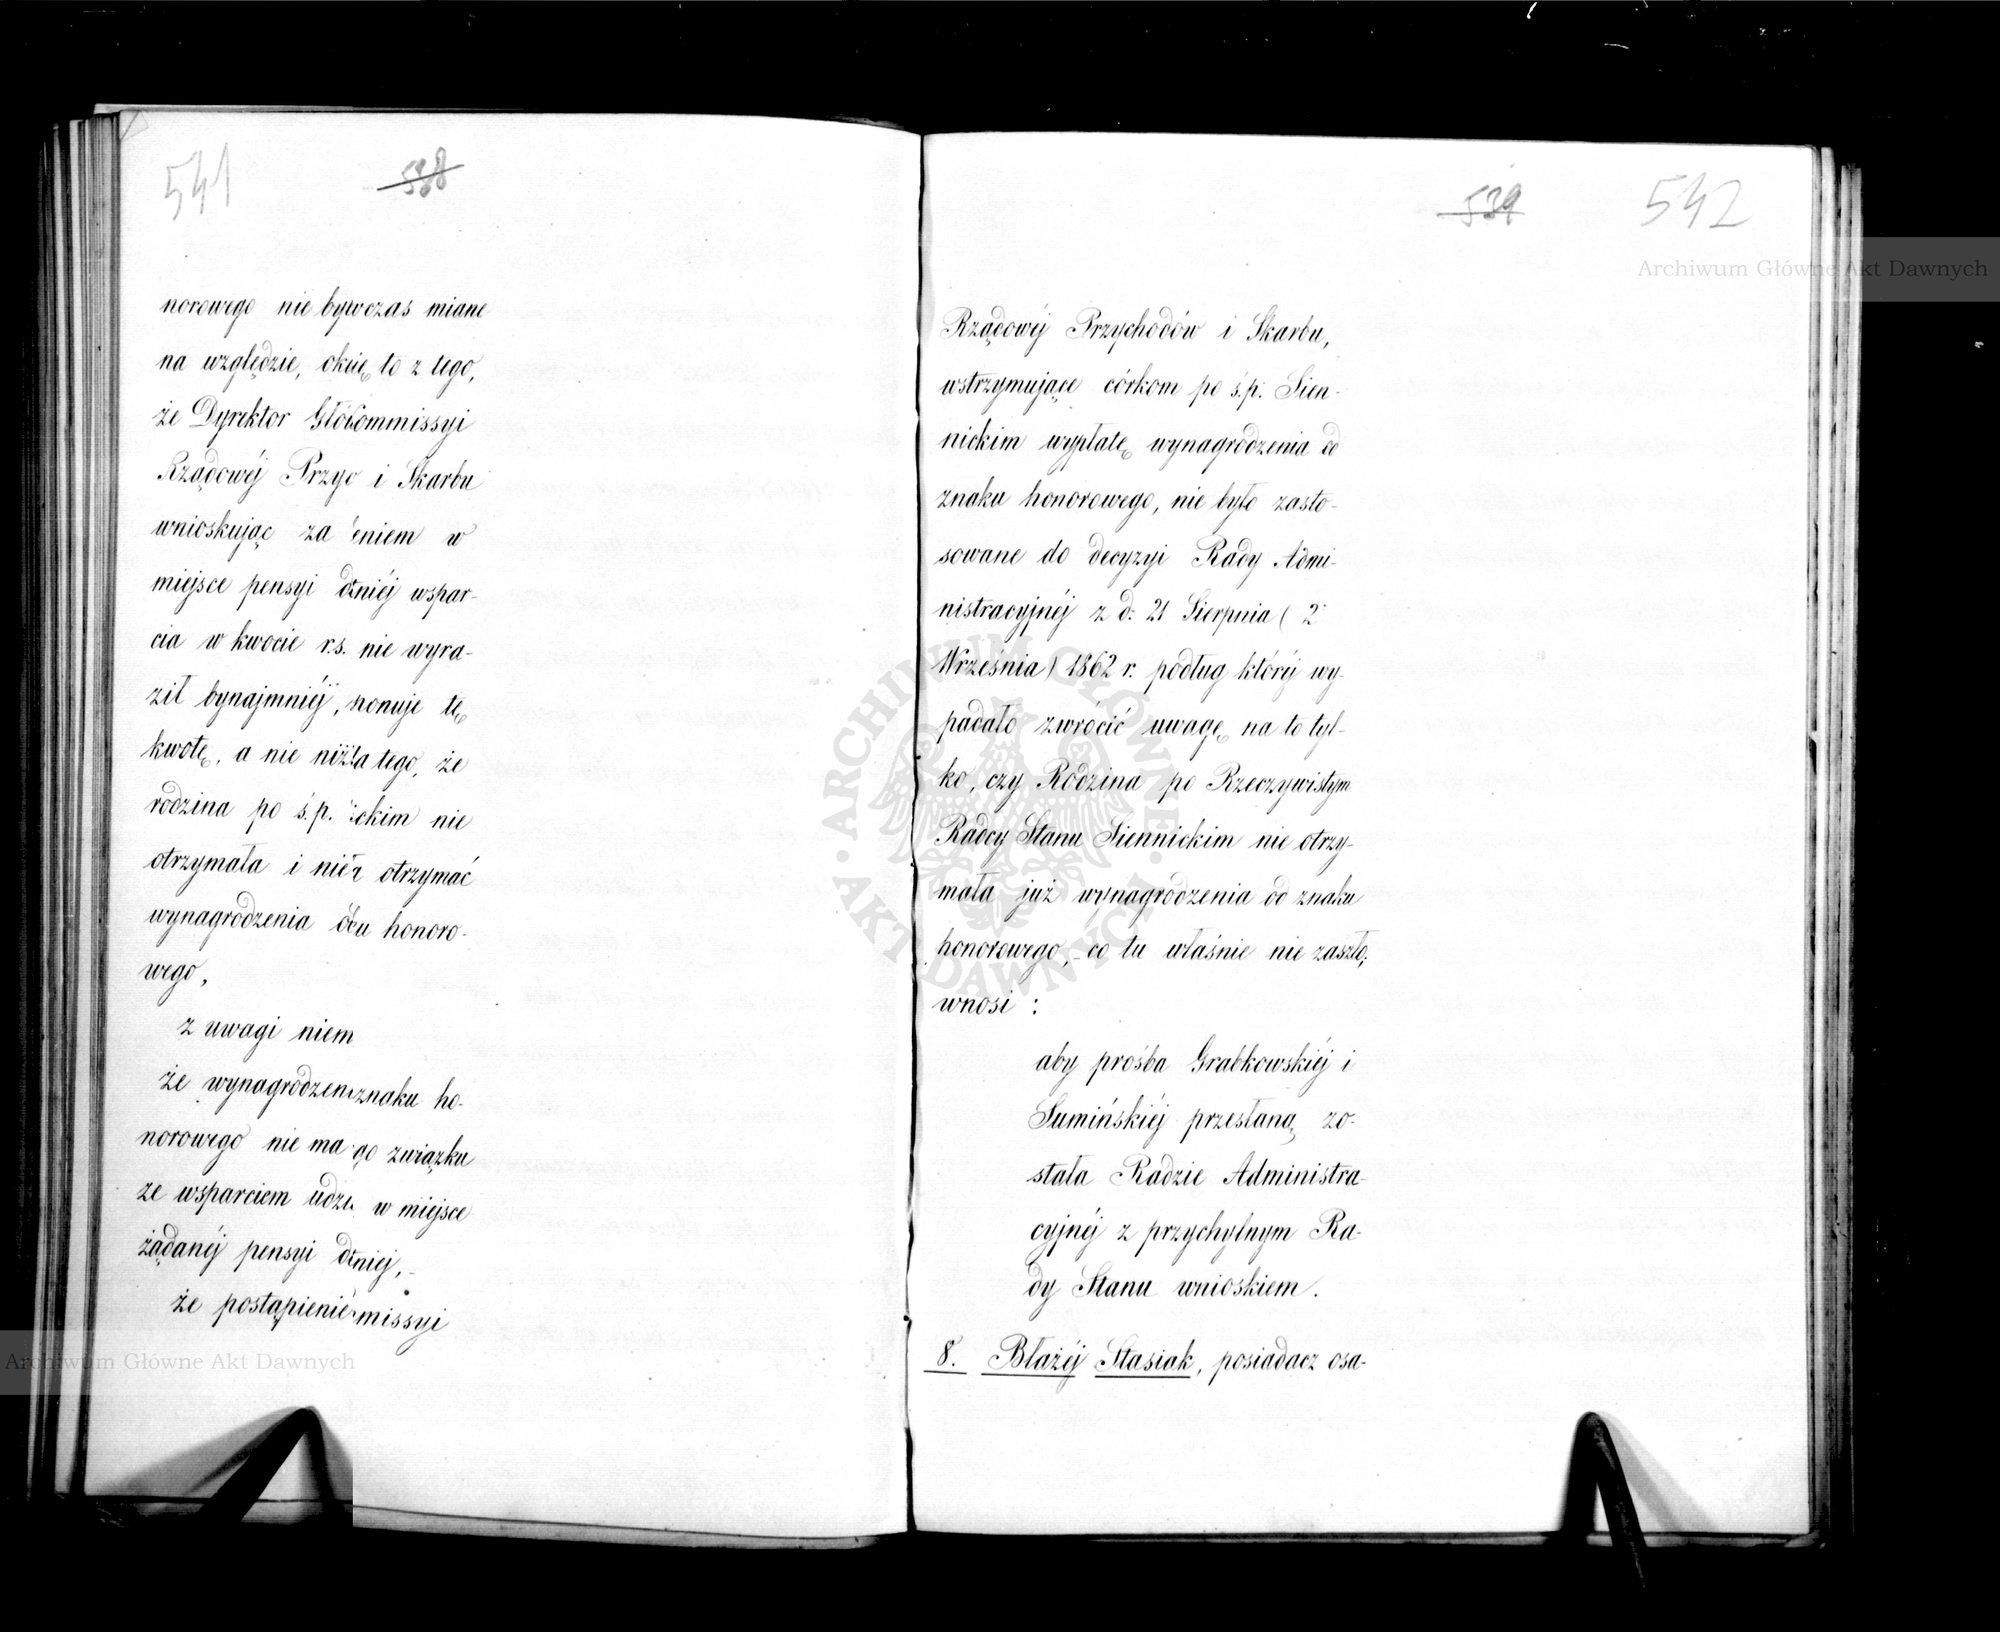 541 538
norowego nie bywczas miane
na względzie, okaę to z tego,
że Dyrektor Głó Commissyi
Rządowéj Przyc i Skarbu
wnioskując za eniem w
miejsce pensyi dniéj wspar-
cia w kwocie r.s. nie wyra-
ził bynajmniéj, nonuje tę
kwotę, a nie niż dla tego, że
rodzina po ś.p. ickim nie
otrzymała i nie otrzymać
wynagrodzenia honoro-
wego,
z uwagi niem
że wynagrodzen znaku ho-
norowego nie ma go związku
ze wsparciem udzi w miejsce
żądanéj pensyi dniej,
że postąpienie missyi
539 542
Rządowéj Przychodów i Skarbu,
wstrzymujące córkom po ś.p. Sien-
nickim wypłatę wynagrodzenia od
znaku honorowego, nie było zasto-
sowane do decyzyi Rady Admi-
nistracyjnéj z d: 21 Sierpnia ( 2
Września) 1862 r. podług któréj wy-
padało zwrócić uwagę na to tyl-
ko, czy Rodzina po Rzeczywistym
Radcy Stanu Siennickim nie otrzy-
mała już wynagrodzenia od znaku
honorowego, co tu właśnie nie zaszło,
wnosi :
aby prośba Grabkowskiéj i
Sumińskiéj przesłaną zo-
stała Radzie Administra-
cyjnéj z przychylnym Ra-
dy Stanu wnioskiem.
8. Błażéj Stasiak, posiadacz osa-
Archiwum Główne Akt Dawnych
Archiwum Główne Akt Dawnych
· ARCHIWUM GŁÓWNE · AKT DAWNYCH